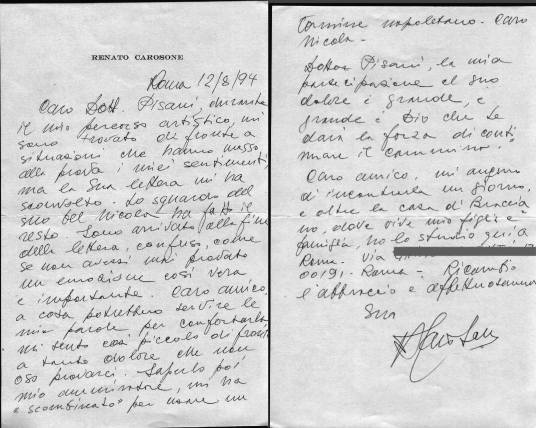 RENATO CAROSONE
Roma 12/8/94
Caro Dott. Pisani, durante
il mio percorso artistico, mi
sono trovato di fronte a
situazioni che hanno messo
alla prova i miei sentimenti
ma la Sua lettera mi ha
sconvolto. Lo sguardo del
suo bel Nicola ha fatto il
resto. Sono arrivato alla fine
della lettera, confuso, come
se non avessi mai provato
un emozione così vera
e importante. Caro amico,
a cosa potrebbero servire le
mie parole per confortarla
mi sento così piccolo di fronte
a tanto dolore che non
oso provarci. Saperlo poi
mio ammiratore, mi ha
"scombinato" per usare un
termine napoletano. Caro
Nicola.
Dottor Pisani, la mia
partecipazione al suo
dolore è grande, e
grande è Dio che Le
darà la forza di conti
nuare il cammino.
Caro amico, mi auguro
di incontrarla un giorno,
e oltre la casa di Braccia
no, dove vive mia figlia e
famiglia, ho lo studio qui a
Roma. Via
00191. Roma - Ricambio
l'abbraccio e affettuosamente
Suo